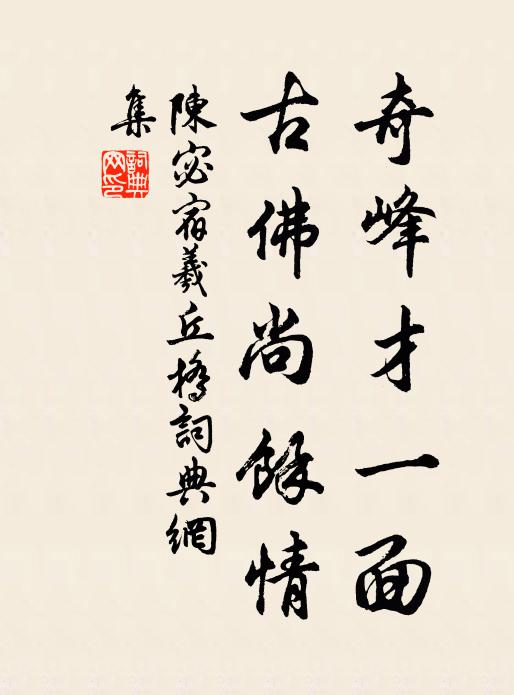 奇峰才一面
古佛尚餘情
陳宓宿羲丘橋詞典網
集
詞典網印